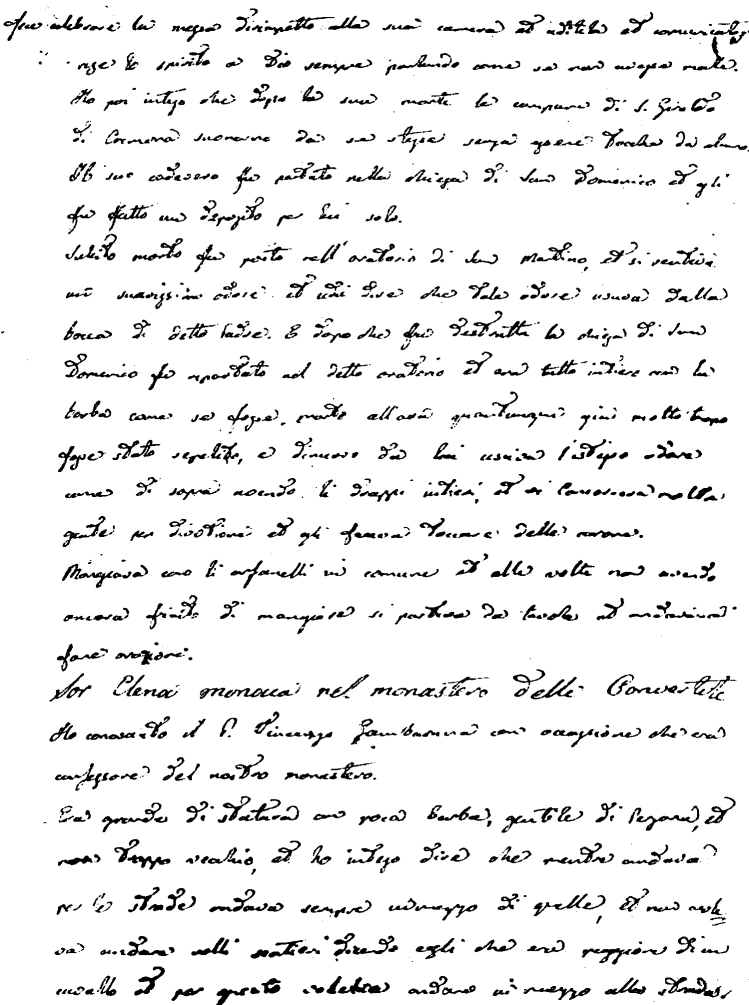 fece celebrare la messa dirimpetto alla sua camera et udirla et comunicatosi
rese lo spirito a Dio sempre parlando come se non avesse male.
Ho poi inteso che dopo la sua morte le campane di S. Giroldo
di Cremona suonarono da se stesse senza essere toccha da alcuno.
Il suo cadavero fu portato nella chiesa di San Domenico et gli
fu fatto un deposito per lui solo.
Subito morto fu posto nell'oratorio di San Martino, et si sentiva
un suavissimo odore et udii dire che tale odore usciva dalla
bocca di detto Padre. E dopo che fu destrutta la chiesa di San
Domenico fu riportato nel detto oratorio et era tutto intiero con la
barba come se fosse morto all'ora quantunque già molto tempo
fosse stato sepelito, e di nuovo da lui usciva l'istesso odore
come di sopra avendo li drappi intieri, et vi concorreva molta
gente per divotione et gli faceva toccare delle corone.
Mangiava con li orfanelli in comune et alle volte non avendo
ancora finito di mangiare si partiva da tavola et andava a
fare orazione.
Sor Elena monaca nel monastero delle Convertite
Ho conosciuto il P. Vincenzo Gambarana con occasione che era
confessore del nostro monastero.
Era grande di statura con poca barba, gentile di persona, et
non troppo vecchio, et ho inteso dire che mentre andava
per le strade andava sempre in mezzo di quelle, et non vole
va andare nelli sentieri dicendo egli che era peggiore di un
cavallo et per questo voleva andare in mezzo alle strade